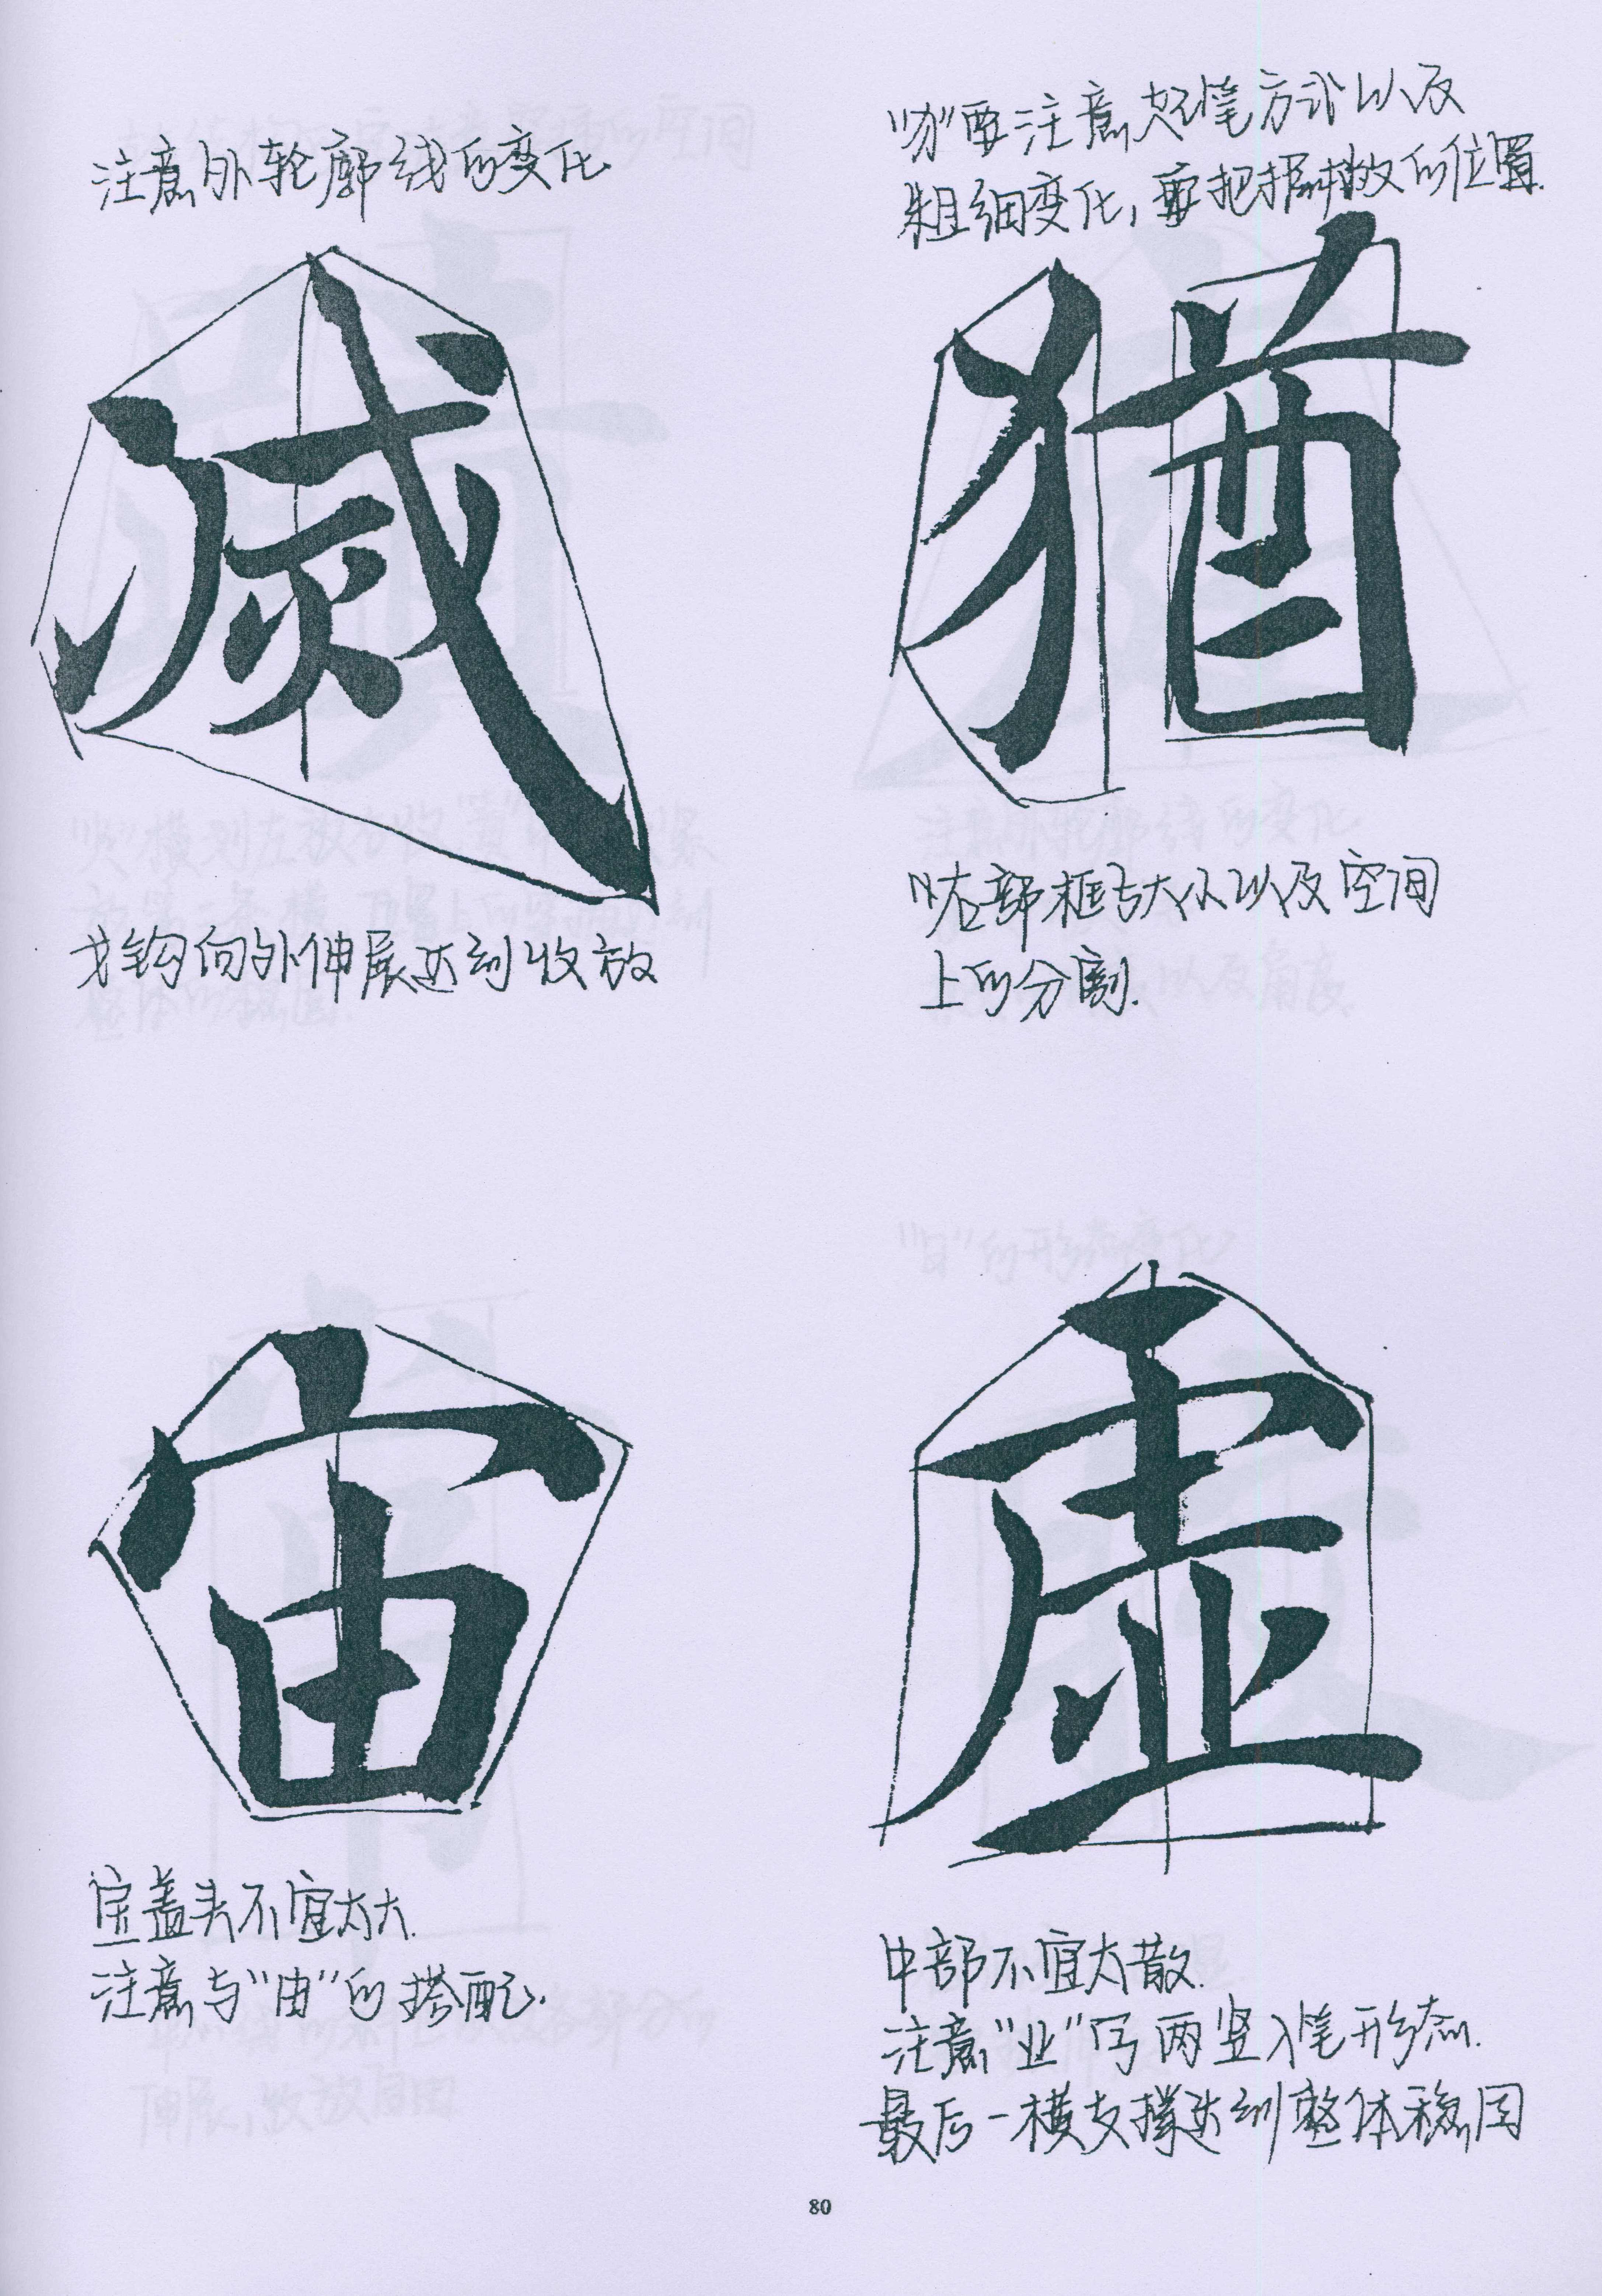 注意外轮廓线的变化
威
戈钩向外伸展达到收放
"犭"要注意起笔方式以及
粗细变化,要把握收放的位置.
猶
右部框与大小以及空间
上的分割.
宙
宝盖头不宜太大.
注意与"由"的搭配.
虚
中部不宜太散.
注意"业"写两竖入笔形态.
最后一横支撑达到整体稳固
80